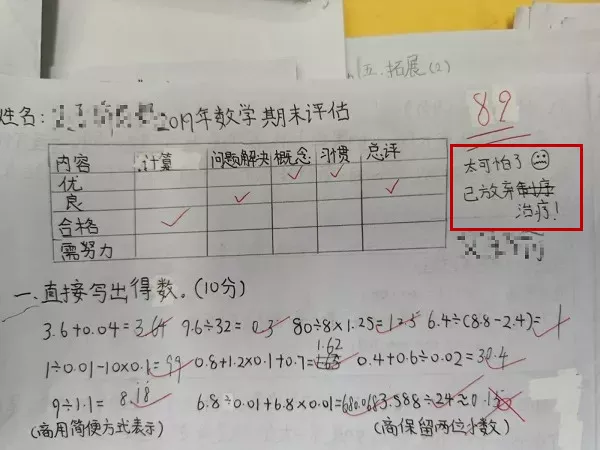 五.拓展(2)
姓名:
2019年数学期末评估
89
内容 计算 问题解决 概念 习惯 总评
优
良
合格
需努力
太可怕了
已放弃
治疗!
一.直接写出得数。(10分)
3.6+0.04=3.64 9.6÷32=0.3 80÷8×1.25=12.5 6.4÷(8.8-2.4)=1
1÷0.01-10×0.1=99 0.8+1.2×0.1+0.7=1.62 0.4+0.6÷0.02=30.4
9÷1.1=8.1̇8̇ 6.8÷0.01+6.8×0.01=680.068 3.588÷24≈0.15
(商用简便方式表示) (商保留两位小数)